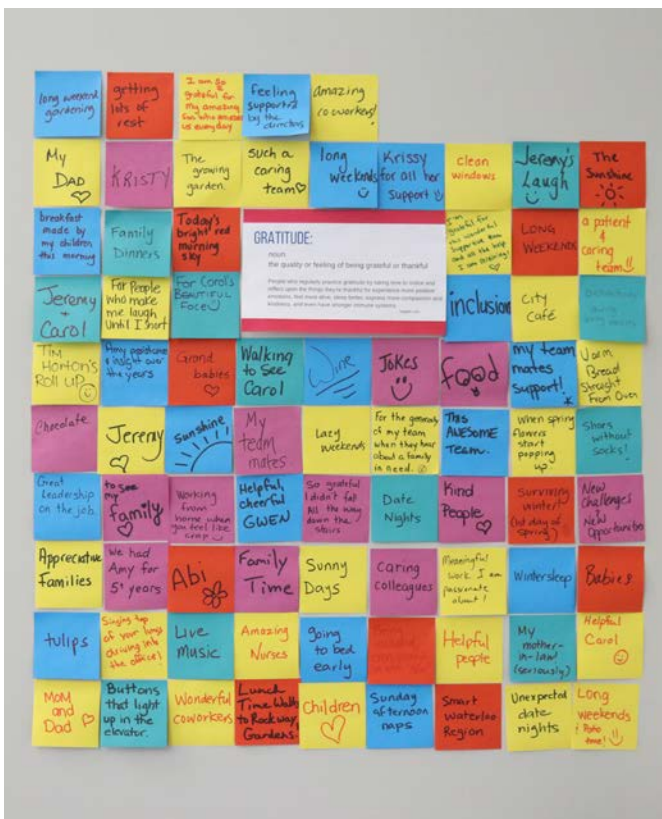 long weekend
gardening
getting
lots of
rest
I am so
grateful for
my amazing
son who amazes
us everyday
feeling
supported
by the
directors
amazing
coworkers!
My
DAD
KRISTY
The
growing
garden.
such a
caring
team
long
weekends
Krissy
for all her
support
clean
windows
Jeremy's
Laugh
The
Sunshine
breakfast
made by
my children
this morning
Family
Dinners
Today's
bright red
morning
sky
GRATITUDE:
noun
the quality or feeling of being grateful or thankful
People who regularly practice gratitude by taking time to notice and
reflect upon the things they're thankful for experience more positive
emotions, feel more alive, sleep better, express more compassion and
kindness, and even have stronger immune systems.
I'm
grateful for
this wonderful
supportive team
and all the help
I am receiving!
LONG
WEEKENDS
a patient
&
caring
team!!
Jeremy
+
Carol
For People
who make
me laugh
Until I snort
For Carol's
BEAUTIFUL
Face
inclusion
City
Café
Tim
Horton's
Roll up
Amy assistance
& insight over
the years
Grand
babies
Walking
to see
Carol
Wine
JOKES
food
my team
mates
support!
Warm
Bread
Straight
From Oven
Chocolate
Jeremy
Sunshine
My
team
mates
Lazy
weekends
For the generosity
of my team
when they hear
about a family
in need.
THIS
AWESOME
TEAM.
When spring
flowers
start
popping
up!
Shoes
without
socks!
Great
Leadership
on the job.
to see
my
family
Working
from
home when
you feel like
crap
Helpful,
cheerful
GWEN
So grateful
I didn't fall
All the way
down the
stairs
Date
Nights
Kind
People
Surviving
winter!
(1st day of
spring)
New
challenges
New
Opportunities
Appreciative
Families
We had
Amy for
5+ years
Abi
Family
Time
Sunny
Days
caring
colleagues
Meaningful
work I am
passionate
about!
Wintersleep
Babies
tulips
Singing top
of your lungs
driving into
the office!
Live
Music
Amazing
Nurses
going
to bed
early
Helpful
people
My
mother-
in-law
(seriously)
Helpful
Carol
Mom
and
Dad
Buttons
that light
up in the
elevator.
Wonderful
coworkers
Lunch
Time Walks
to Rockway
Gardens!
Children
Sunday
afternoon
naps
Smart
waterloo
Region
Unexpected
date
nights
Long
weekends
& Patio
time!